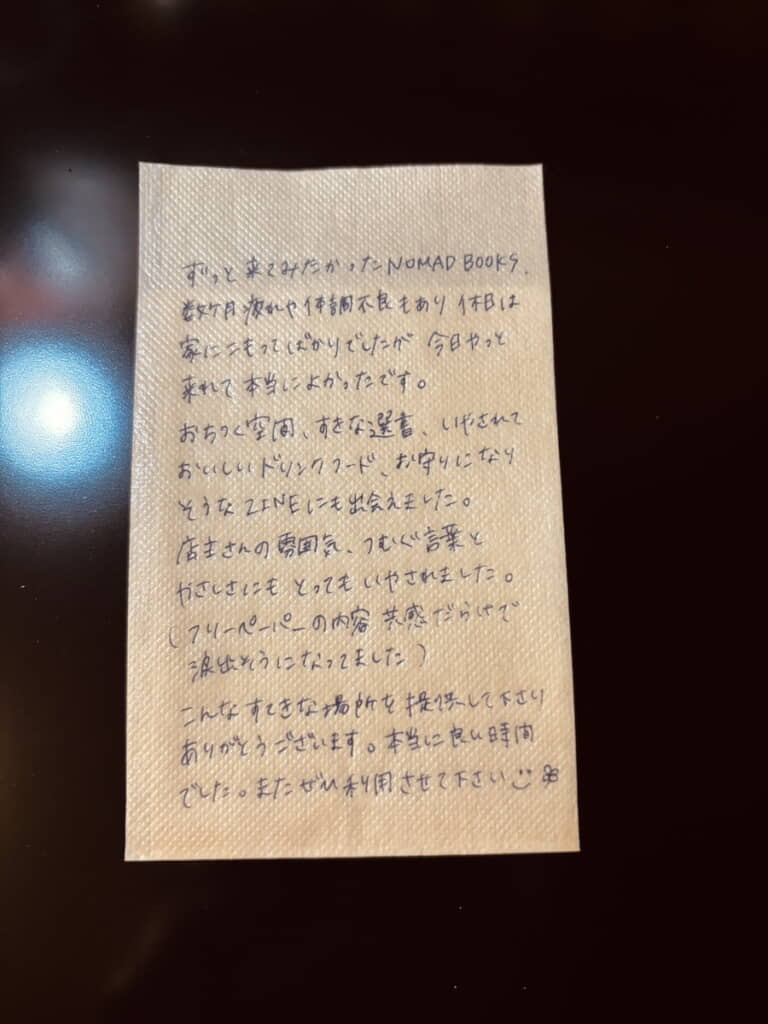 ずっと来てみたかったNOMAD BOOKS、
数ヶ月疲れや体調不良もあり休日は
家にこもってばかりでしたが 今日やっと
来れて本当によかったです。
おちつく空間、すきな選書、いやされて
おいしいドリンクフード、お守りになり
そうなZINEにも出会えました。
店主さんの雰囲気、つむぐ言葉と
やさしさにも とっても いやされました。
(フリーペーパーの内容 共感だらけで
涙出そうになってました)
こんなすてきな場所を提供して下さり
ありがとうございます。本当に良い時間
でした。またぜひ利用させて下さい